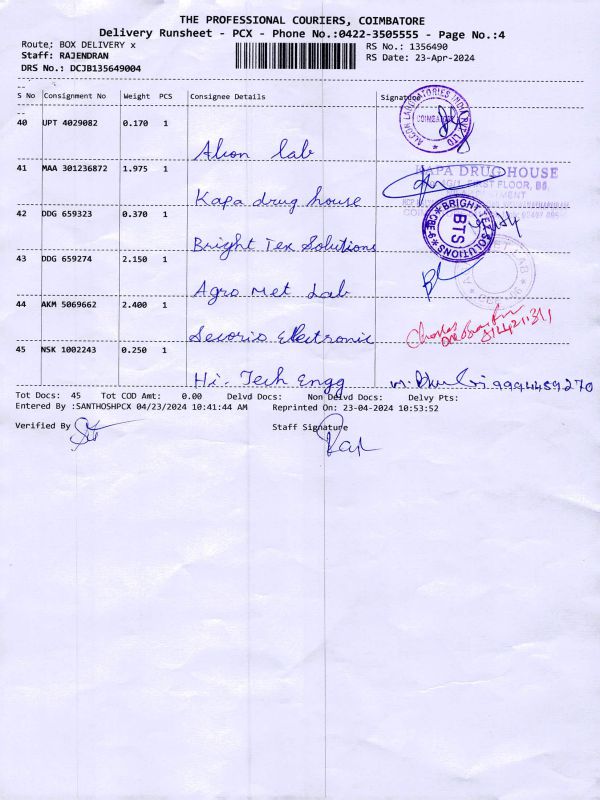 THE PROFESSIONAL COURIERS, COIMBATORE
Delivery Runsheet - PCX - Phone No.:0422-3505555 - Page No.:4
Route: BOX DELIVERY x
RS No.: 1356490
Staff: RAJENDRAN
RS Date: 23-Apr-2024
DRS No.: DCJB135649004
S No Consignment No Weight PCS Consignee Details Signature
40 UPT 4029082 0.170 1
Alcon lab
ALCON LABORATORIES INDIA PVT LTD
COIMBATORE
41 MAA 301236872 1.975 1
Kapa drug house
KAPA DRUG HOUSE
FIRST FLOOR,
42 DDG 659323 0.370 1
Bright Tex Solutions
BRIGHT TEX SOLUTIONS
BTS
CBE-6
43 DDG 659274 2.150 1
Agro Met Lab
44 AKM 5069662 2.400 1
Secorio Electronic
45 NSK 1002243 0.250 1
Hi. Tech Engg
9994459270
Tot Docs: 45 Tot COD Amt: 0.00 Delvd Docs: Non Delvd Docs: Delvy Pts:
Entered By :SANTHOSHPCX 04/23/2024 10:41:44 AM Reprinted On: 23-04-2024 10:53:52
Verified By
Staff Signature